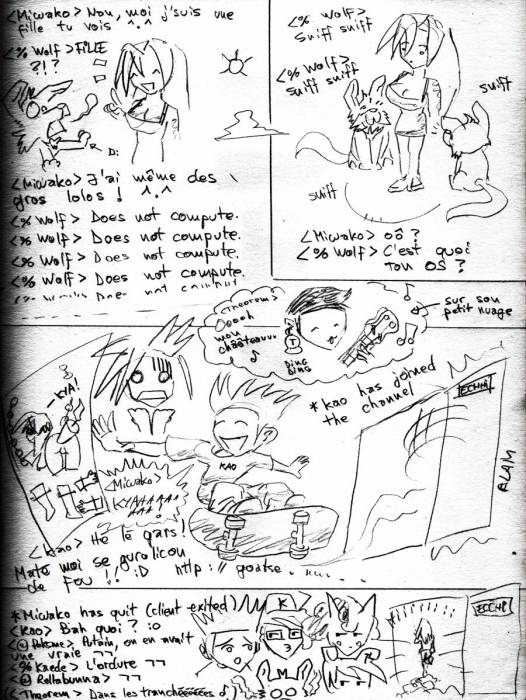 <Miwako> Non, moi j'suis une
fille tu vois ^.^
<% Wolf> FILLE
?!?
D:
<Miwako> J'ai même des
gros lolos ! ^.^
<% Wolf> Does not compute.
<% Wolf> Does not compute.
<% Wolf> Does not compute.
<% Wolf> Does not compute.
<% Wolf> Does not comput
<% Wolf>
sniff sniff
<% Wolf>
sniff sniff
sniff
sniff
<Miwako> oô ?
<% Wolf> C'est quoi
ton OS ?
<Theorem>
Ooooh
mon
châteauuu
DING
DING
sur son
petit nuage
KYA!
*Kao has joined
the channel
ECHAP
BLAM
KAO
<Miwako>
KYAAAAAA
AAA!
<Kao> Hé lé gars!
Maté moi se gurolicou
de fou !! :D http://goatse.
*Miwako has quit (client exited)
<Kao> Bah quoi ? :o
Putain, on en avait
une vraie ¬¬
<% Kaede> L'ordure ¬¬
<@ Rollabunna> ¬¬
<Theorem> Dans les tranchéééééées
K
M
ECCHP